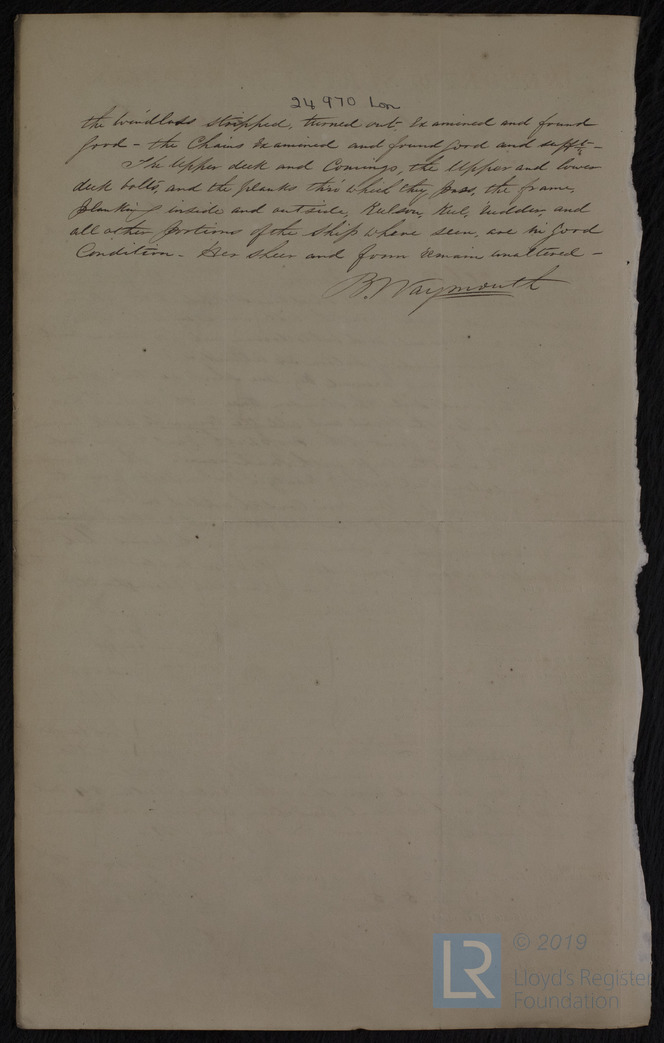 24970 Lon
the Windlass stripped, turned out, Examined and found
good - the Chains Examined and found good and sufft -
The Upper deck and Comings, the Upper and lower
deck bolts, and the planks thro which they pass, the frame,
planking inside and outside, Kelson, Keel, Rudder, and
all other portions of the Ship where seen, are in good
Condition - Her Sheer and form remain unaltered -
B. Waymouth
LR
© 2019
Lloyd's Register
Foundation